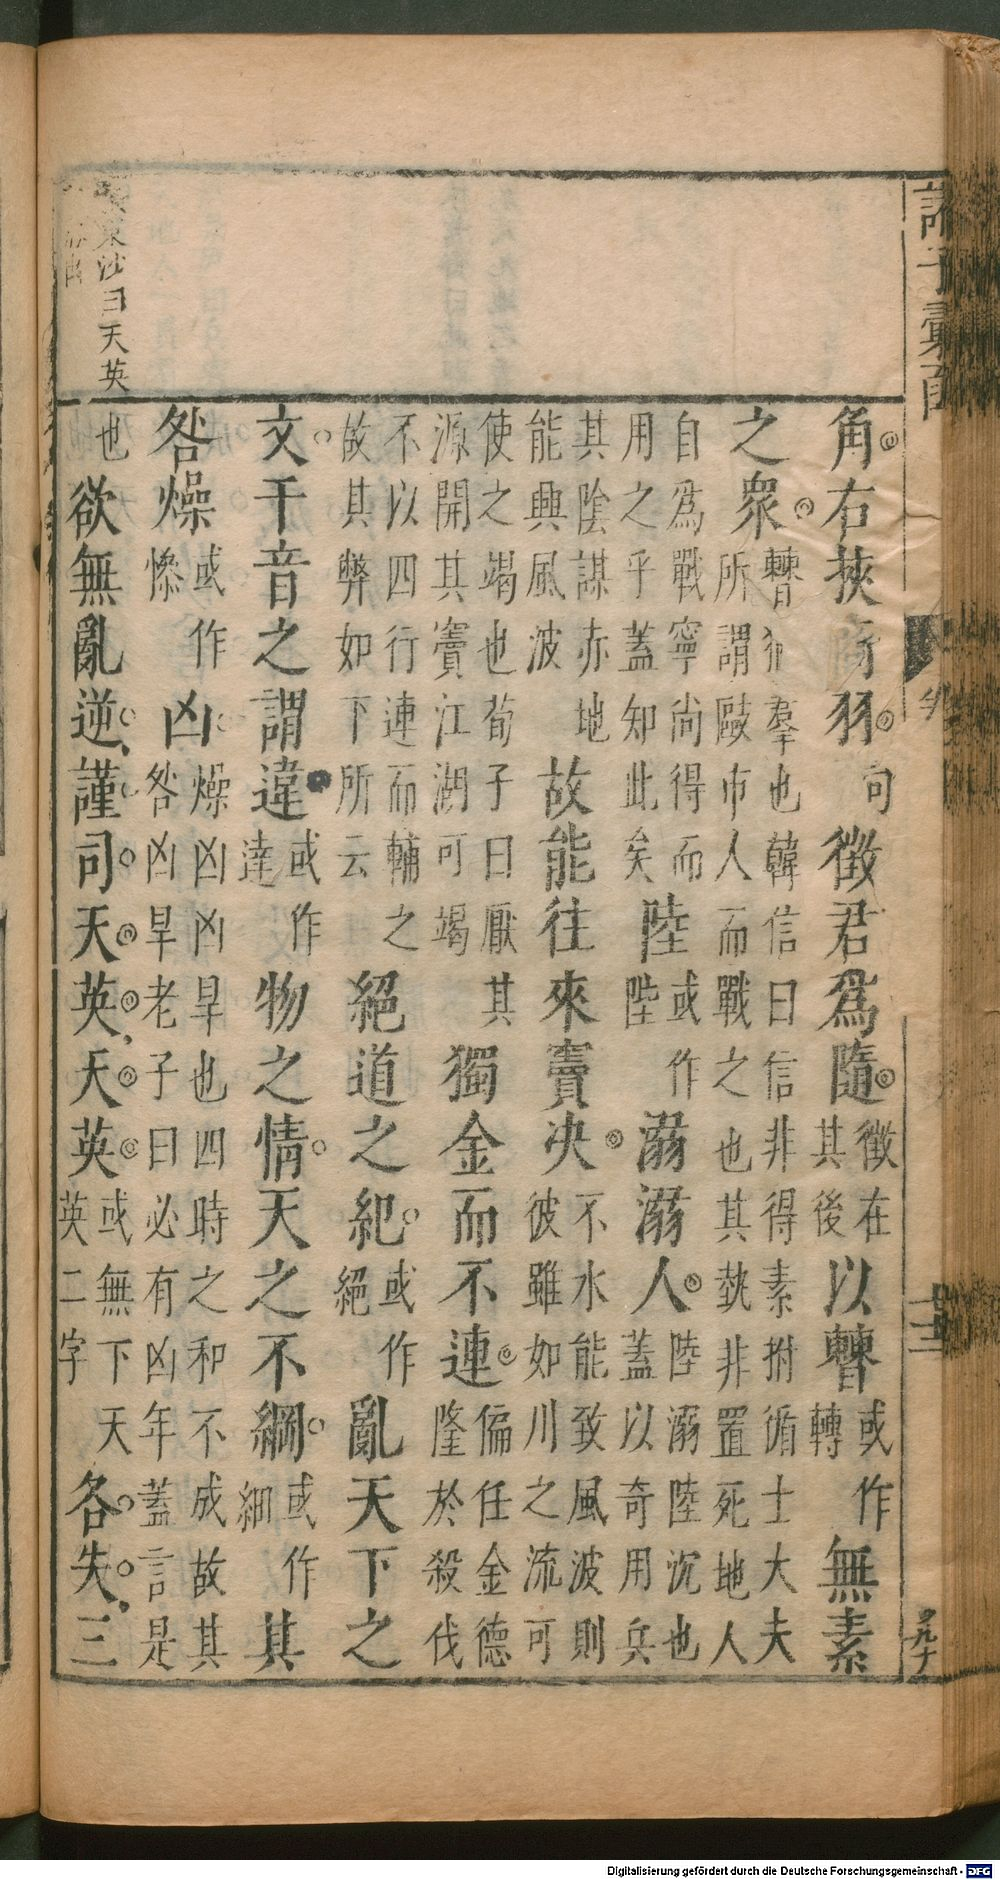 諸子彙函
角右挾商羽句徵君爲隨徵在其後以轊或作轉無素
之衆轊猶羣也韓信曰信非得素拊循士大夫所謂敺市人而戰之也其埶非置死地人
自爲戰寧尚得而用之乎蓋知此矣陸或作陛溺溺人陸溺陸沉也蓋以奇用兵
其陰謀赤地能興風波故能往來竇决不水能致風波則彼雖如川之流可
使之竭也荀子曰厭其源開其竇江湖可竭獨金而不連偏任金德隆於殺伐
不以四行連而輔之故其弊如下所云絕道之紀或作絕亂天下之
文干音之謂違或作達物之情天之不綱或作細其
咎燥或作慘凶燥凶凶旱也四時之和不成故其咎凶旱老子曰必有凶年蓋言是
也欲無亂逆謹司天英天英或無下天英二字各失三
東沙曰天英